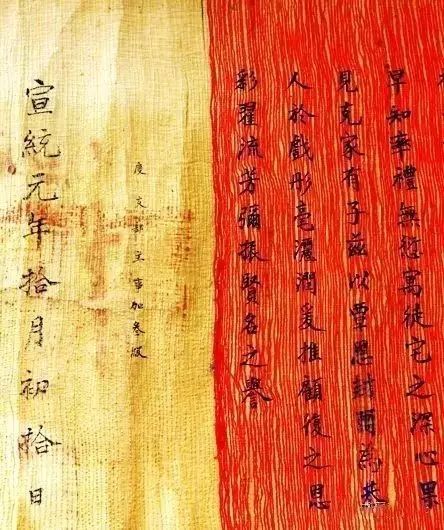 早知率禮無愆寓徒宅之深心果
見克家有子茲以覃恩封爾為恭
人於戲彤毫灑潤爰推顧後之恩
彩翟流芳彌振賢名之譽
度支部主事加叁級
宣統元年拾月初拾日